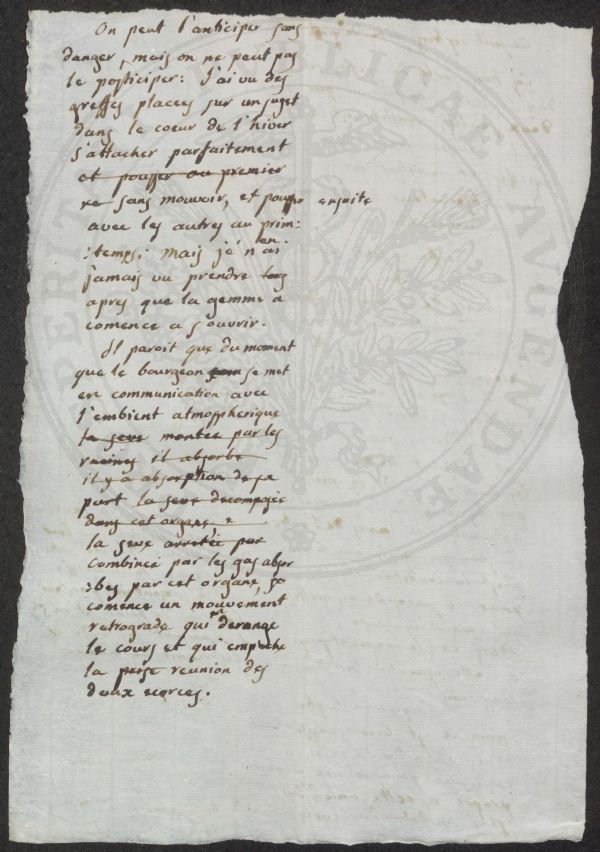 On peut l'anticiper sans
danger, mais on ne peut pas
le posticiper: J'ai vu des
greffes placés sur un sujet
dans le coeur de l'hiver
s'attacher parfaitement
et pousser au premier
re sans mouvoir, et pousser ensuite
avec les autres au prim:
:temps. Mais je n'en ai
jamais vu prendre
apres que la gemme a
comence a s'ouvrir.
Il paroit que du moment
que le bourgeon se met
en communication avec
l'embient atmospherique
la seve montée par les
racines il absorbe
il y a absorption de sa
part la seve decomposée
dans cet organe
la seve arretée par
combinée par les gas absor
:bés par cet organe,
comence un mouvement
retrograde qui en derange
le cours et qui empeche
la prise reunion des
deux ecorces.
PERITI
AUGENDAE